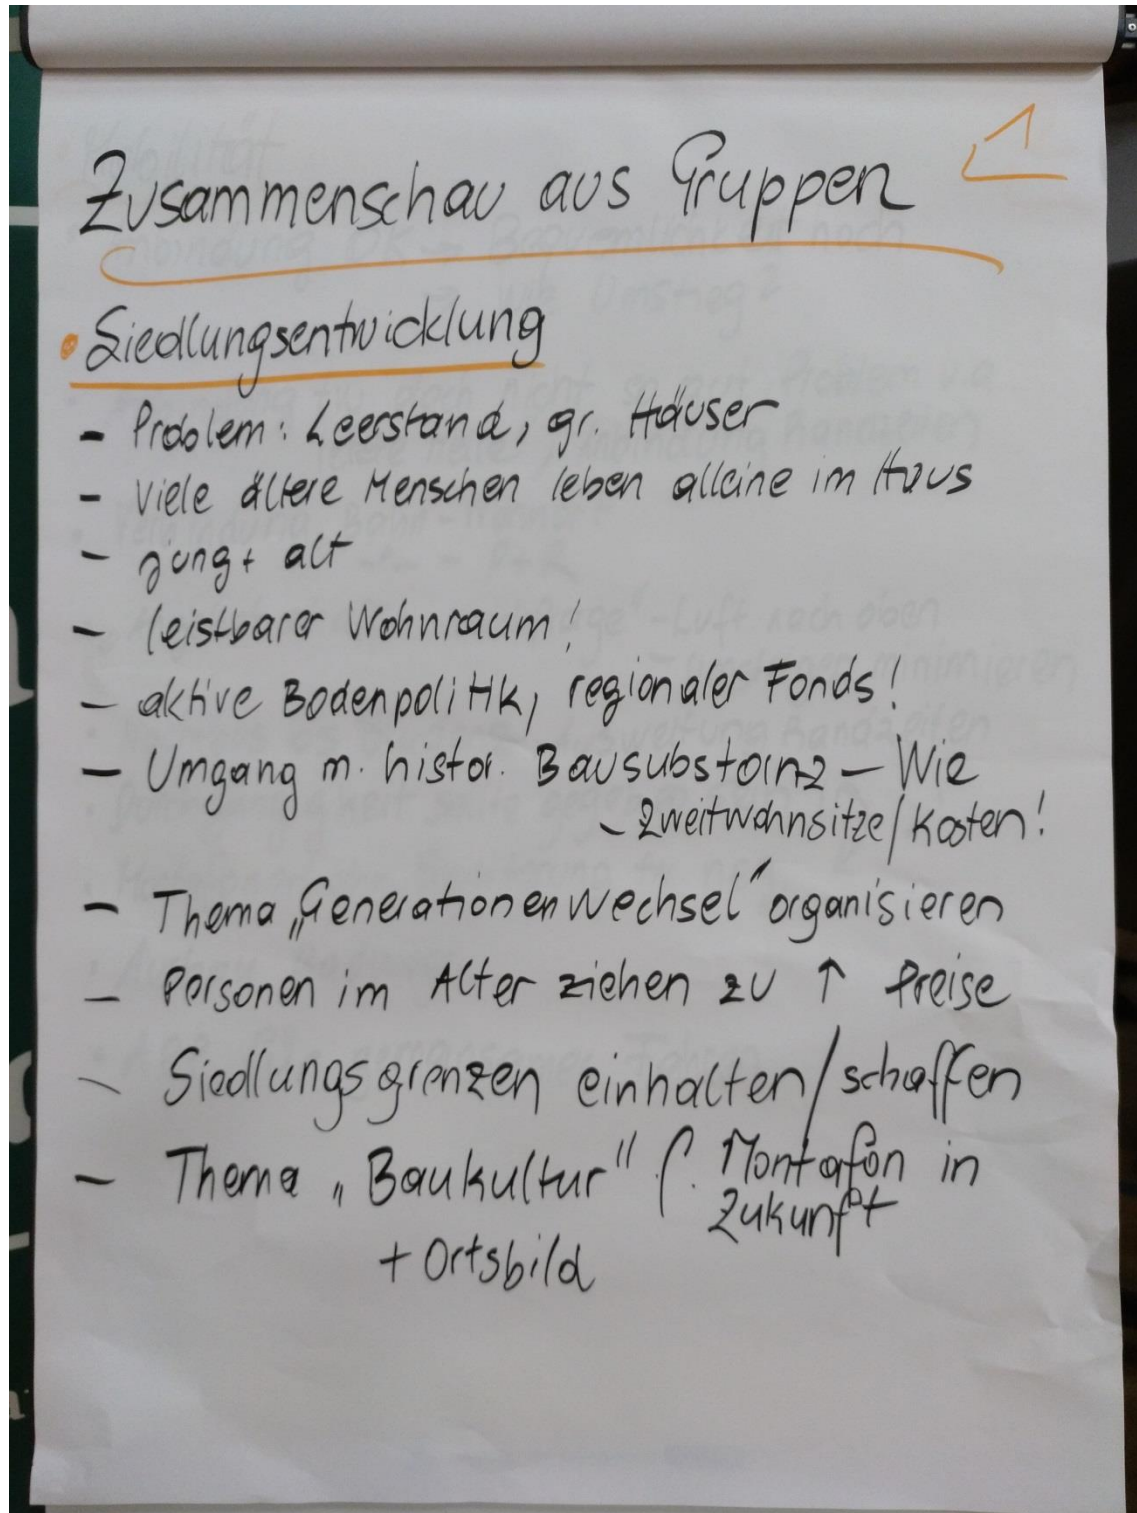 1
Zusammenschau aus Gruppen
• Siedlungsentwicklung
- Problem: Leerstand, gr. Häuser
- Viele ältere Menschen leben alleine im Haus
- jung + alt
- leistbarer Wohnraum!
- aktive Bodenpolitik, regionaler Fonds!
- Umgang m. histor. Bausubstanz - Wie
- Zweitwohnsitze/Kosten!
- Thema „Generationenwechsel" organisieren
- Personen im Alter ziehen zu ↑ Preise
- Siedlungsgrenzen einhalten/schaffen
- Thema „Baukultur" f. Montafon in
Zukunft
+ Ortsbild